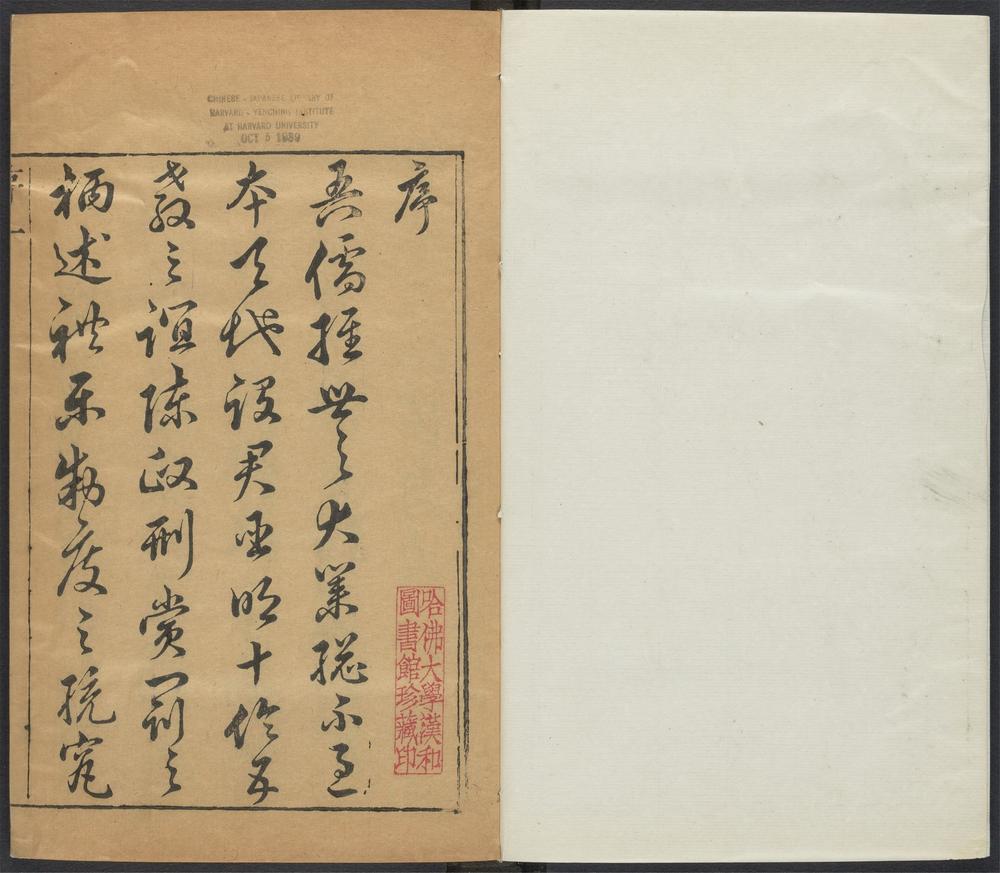 CHINESE - JAPANESE LIBRARY OF
HARVARD - YENCHING INSTITUTE
AT HARVARD UNIVERSITY
OCT 5 1939
序
吾儒經世之大業總不過
本天地設君臣明十倫五
教之誼陳政刑賞罰之
柄述禮樂制度之統究
哈佛大學漢和
圖書館珍藏印
序 一